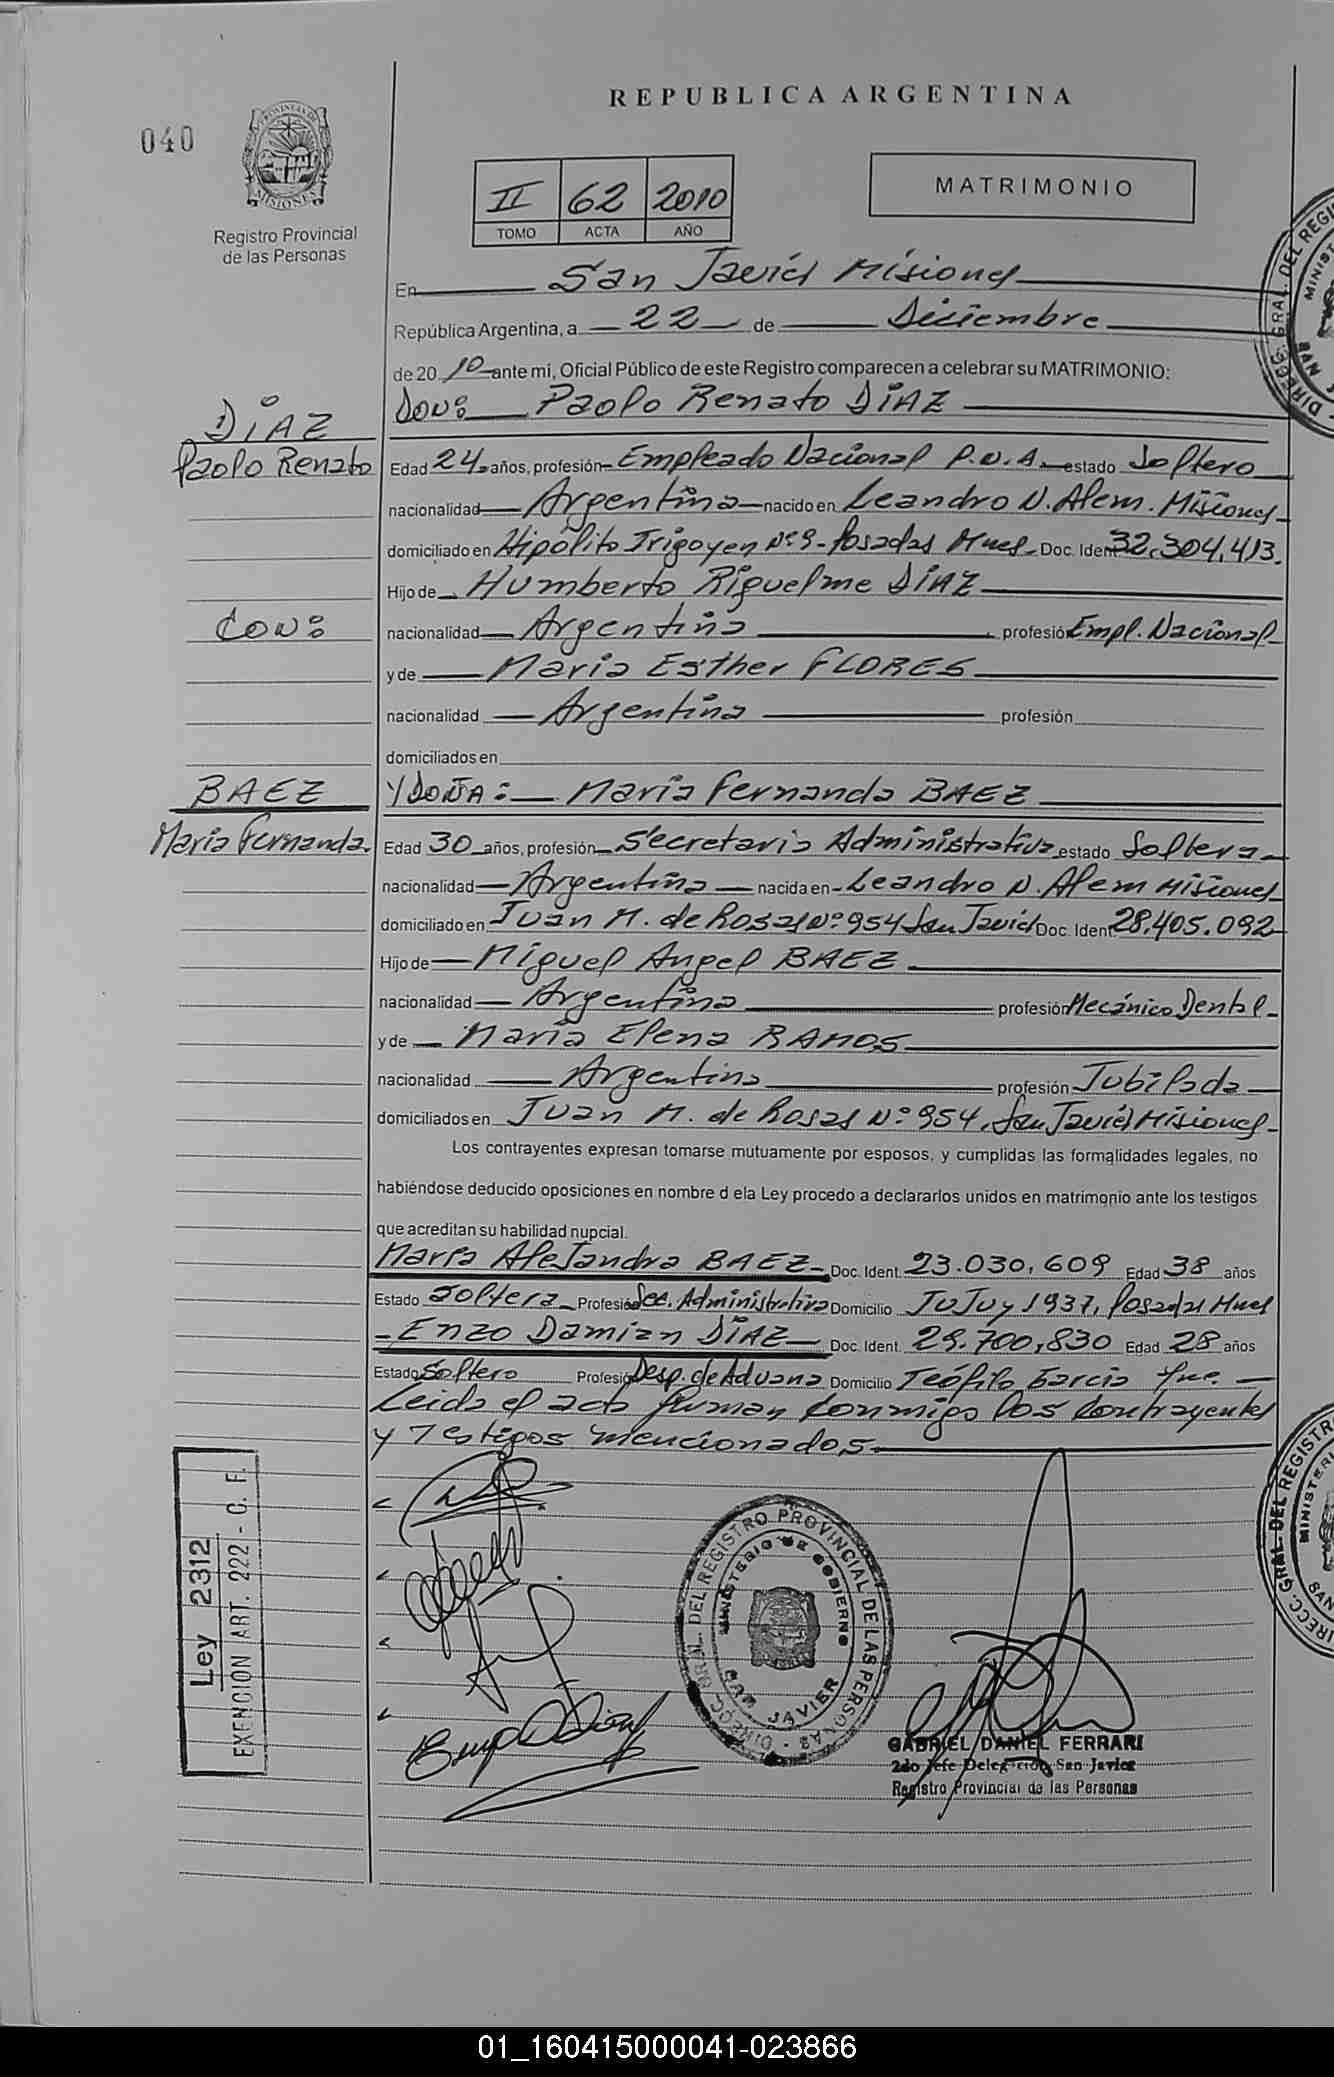 REPUBLICA ARGENTINA
040
Registro Provincial
de las Personas
II 62 2010
TOMO ACTA AÑO
MATRIMONIO
En San Javier Misiones
República Argentina, a 22 de Diciembre
de 20 10 ante mi, Oficial Público de este Registro comparecen a celebrar su MATRIMONIO:
DíAZ
Paolo Renato
Don: Paolo Renato DíAZ
Edad 24 años, profesión Empleado Nacional P.N.A. estado Soltero
nacionalidad Argentina nacido en Leandro N. Alem. Misiones
domiciliado en Hipólito Irigoyen Nº 9 - Posadas Mnes Doc. Ident 32.304.413.
Hijo de Humberto Riquelme DíAZ
CON:
nacionalidad Argentina profesió Empl. Nacional
y de Maria Esther FLORES
nacionalidad Argentina profesión
domiciliados en
BAEZ
Maria Fernanda.
Y DOÑA: María Fernanda BAEZ
Edad 30 años, profesión Secretaria Administrativa estado Soltera
nacionalidad Argentina nacida en Leandro N. Alem Misiones
domiciliado en Juan M. de Rosas Nº 954 San Javier Doc. Ident 28.405.092
Hijo de Miguel Angel BAEZ
nacionalidad Argentina profesión Mecánico Dental
y de María Elena RAMOS
nacionalidad Argentina profesión Jubilada
domiciliados en Juan M. de Rosas Nº 954, San Javier Misiones
Los contrayentes expresan tomarse mutuamente por esposos, y cumplidas las formalidades legales, no
habiéndose deducido oposiciones en nombre d ela Ley procedo a declararlos unidos en matrimonio ante los testigos
que acreditan su habilidad nupcial.
María Alejandra BAEZ Doc. Ident. 23.030.609 Edad 38 años
Estado Soltera Profesió Sec. Administrativa Domicilio Jujuy 1937, Posadas Mnes
Enzo Damian DíAZ Doc. Ident. 29.700.830 Edad 28 años
Estado Soltero Profesió Desp. de Aduana Domicilio Teófilo Garcia
Leida el acta firman conmigo los contrayentes
y Testigos mencionados.
Ley 2312
EXENCION ART. 222 - C. F.
DIRECC. GRAL. DEL REGISTRO PROVINCIAL DE LAS PERSONAS
MINISTERIO DE GOBIERNO
SAN JAVIER
GABRIEL DANIEL FERRARI
2do Jefe Delegación San Javier
Registro Provincial de las Personas
01_160415000041-023866